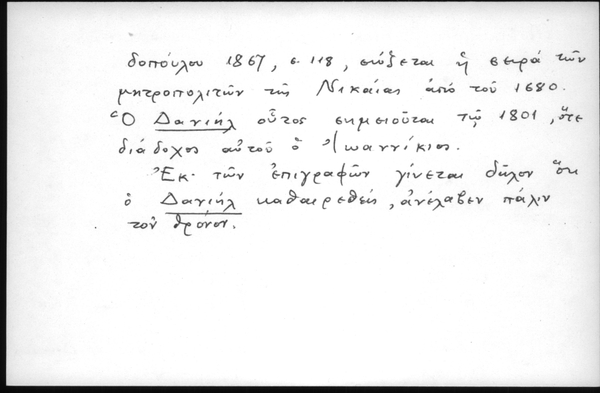 δοπούλου 1867, σ. 118, σώζεται ἡ σειρά τῶν
μητροπολιτῶν τῆς Νικαίας ἀπό τοῦ 1680.
Ὁ Δανιήλ οὗτος σημειοῦται τῷ 1801, ὅτε
διάδοχος αὐτοῦ ὁ Ἰωαννίκιος.
Ἐκ τῶν ἐπιγραφῶν γίνεται δῆλον ὅτι
ὁ Δανιήλ καθαιρεθείς, ἀνέλαβεν πάλιν
τόν θρόνον.